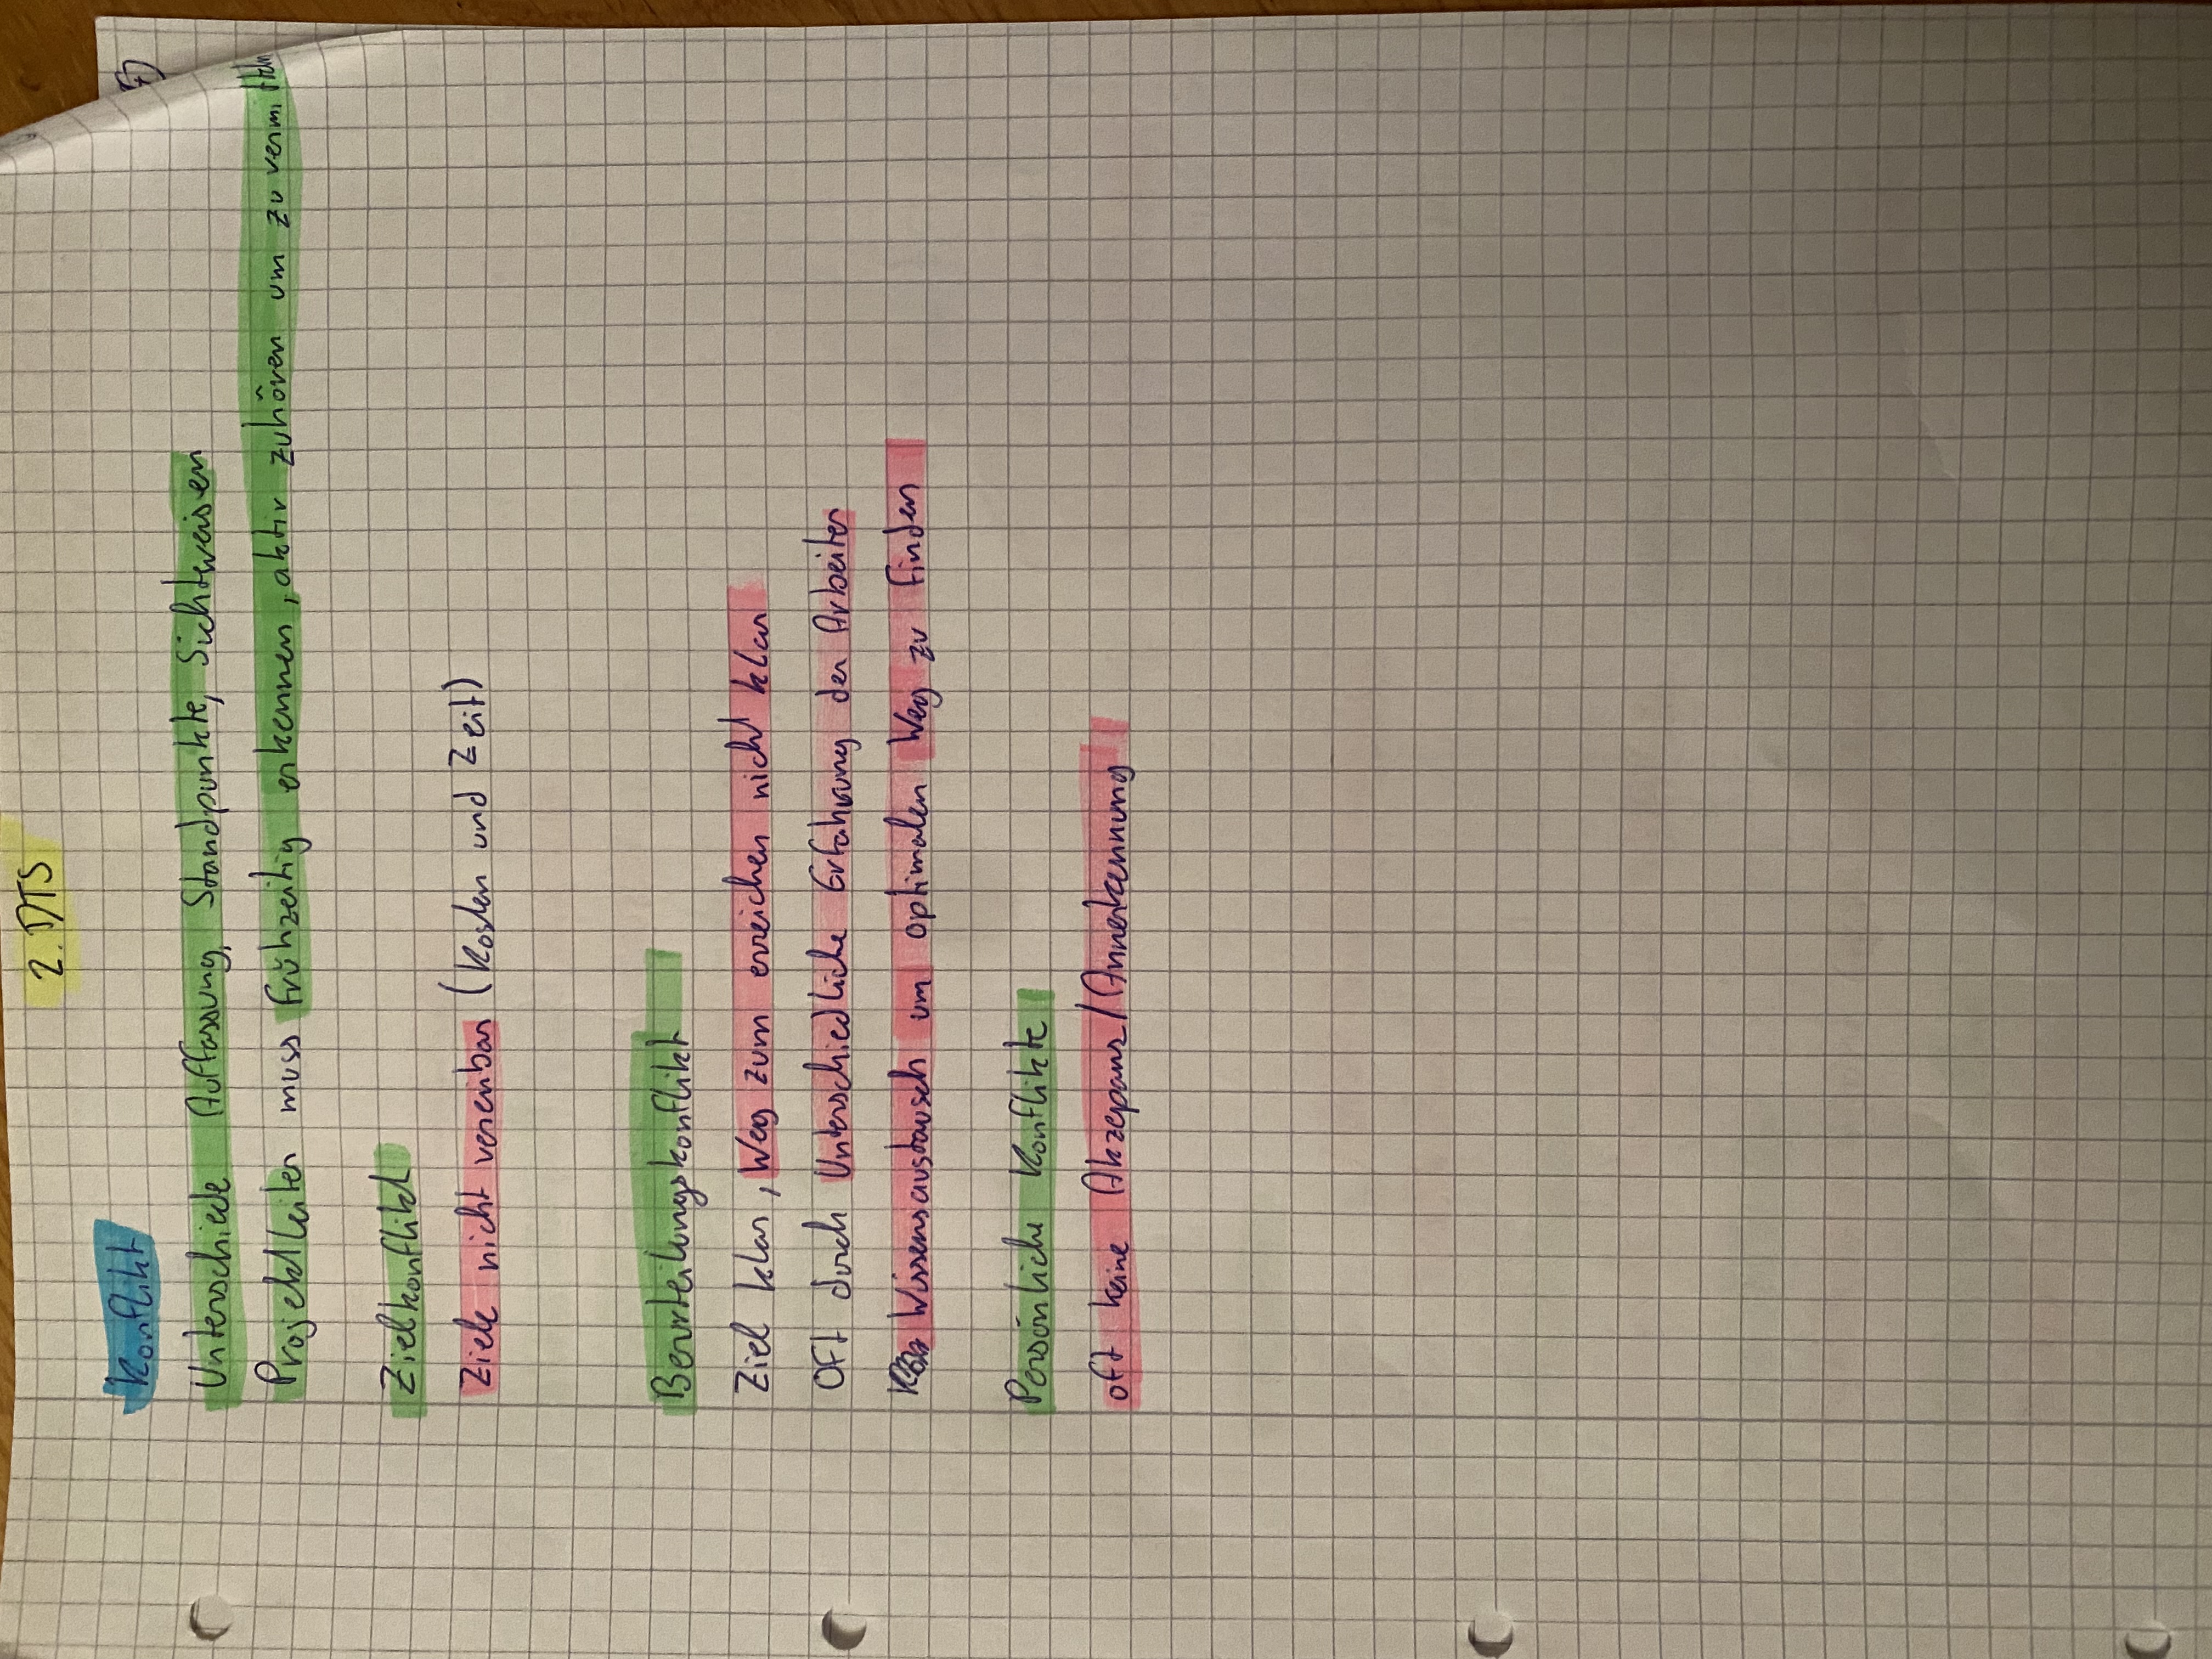 2. DTS
Konflikt
Unterschiede Auffassung, Standpunkte, Sichtweisen
Projektleiter muss frühzeitig erkennen, aktiv zuhören um zu vermitteln
Zielkonflikt
Ziele nicht vereinbar (Kosten und Zeit)
Beurteilungskonflikt
Ziel klar, Weg zum erreichen nicht klar
Oft durch Unterschiedliche Erfahrung der Arbeiter
Wissensaustausch um optimalen Weg zu finden
Persönliche Konflikte
oft keine Akzepanz/Annerkennung